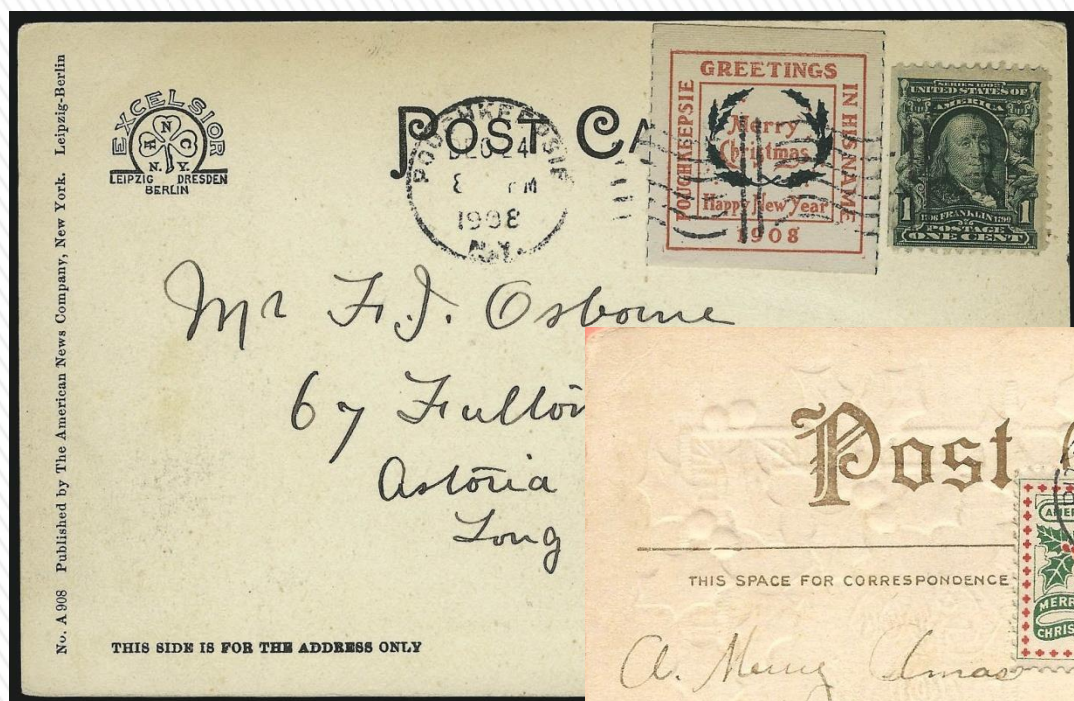 No. A 908 Published by The American News Company, New York. Leipzig-Berlin
EXCELSIOR
A N C
N.Y.
LEIPZIG DRESDEN
BERLIN
POST CA
POUGHKEEPSIE
DEC 24
8 PM
1908
N.Y.
GREETINGS
IN HIS NAME
POUGHKEEPSIE
Merry
Christmas
Happy New Year
1908
SERIES 1902
UNITED STATES OF
AMERICA
1 FRANKLIN 1
POSTAGE
ONE CENT
Mr F. J. Osborne
67 Fulton
Astoria
Long
THIS SIDE IS FOR THE ADDRESS ONLY
Post
THIS SPACE FOR CORRESPONDENCE
AMER
MERR
CHRIS
A. Merry Xmas